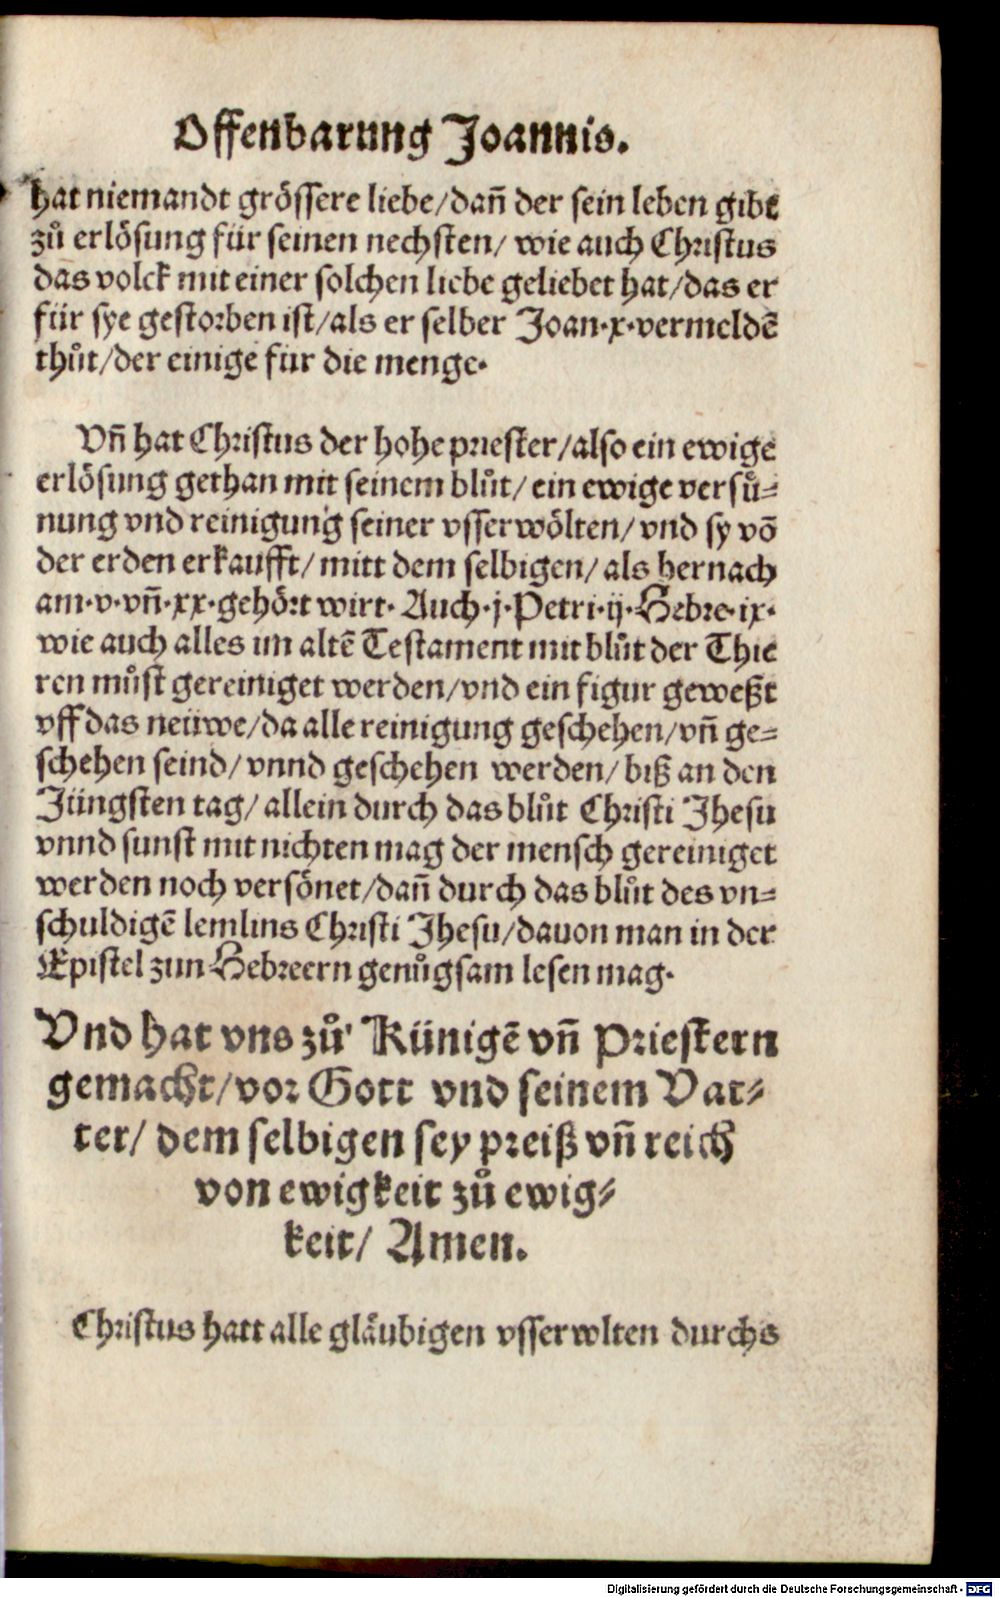 Offenbarung Joannis.
hat niemandt grössere liebe/dañ der sein leben gibt
zů erlösung für seinen nechsten/ wie auch Christus
das volck mit einer solchen liebe geliebet hat/das er
für sye gestorben ist/als er selber Joan·x·vermeldẽ
thůt/der einige für die menge·
Vñ hat Christus der hohe priester/also ein ewige
erlösung gethan mit seinem blůt/ ein ewige versů⸗
nung vnd reinigung seiner vsserwölten/ vnd sy võ
der erden erkaufft/ mitt dem selbigen/ als hernach
am·v·vñ·xx·gehört wirt· Auch·j·Petri·ij·Hebre·ix·
wie auch alles im altẽ Testament mit blůt der Thie
ren můst gereiniget werden/vnd ein figur geweßt
vff das neüwe/da alle reinigung geschehen/vñ ge⸗
schehen seind/ vnnd geschehen werden/ biß an den
Jüngsten tag/ allein durch das blůt Christi Jhesu
vnnd sunst mit nichten mag der mensch gereiniget
werden noch versönet/dañ durch das blůt des vn⸗
schuldigẽ lemlins Christi Jhesu/davon man in der
Epistel zun Hebreern genůgsam lesen mag·
Vnd hat vns zů Künigẽ vñ Priestern
gemacht/vor Gott vnd seinem Vat⸗
ter/ dem selbigen sey preiß vñ reich
von ewigkeit zů ewig⸗
keit/ Amen.
Christus hatt alle gläubigen vsserwlten durchs
Digitalisierung gefördert durch die Deutsche Forschungsgemeinschaft - DFG